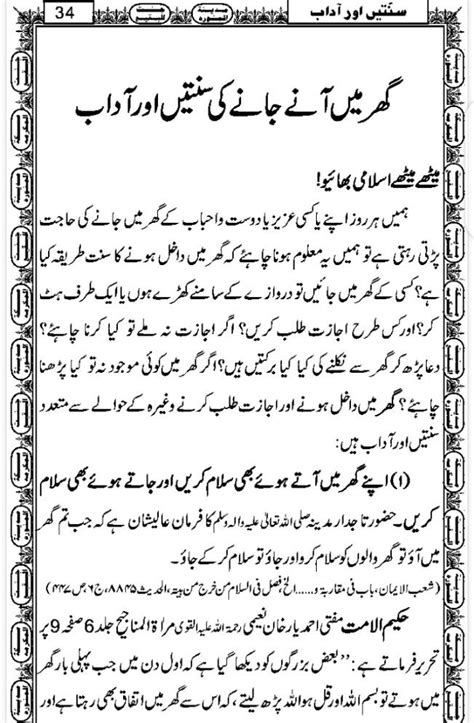 سنتیں اور آداب
34
گھر میں آنے جانے کی سنتیں اور آداب
میٹھے میٹھے اسلامی بھائیو!
ہمیں ہر روز اپنے یا کسی عزیز یا دوست و احباب کے گھر میں جانے کی حاجت
پڑتی رہتی ہے تو ہمیں یہ معلوم ہونا چاہئے کہ گھر میں داخل ہونے کا سنت طریقہ کیا
ہے؟ کسی کے گھر میں جائیں تو دروازے کے سامنے کھڑے ہوں یا ایک طرف ہٹ
کر؟ اور کس طرح اجازت طلب کریں؟ اگر اجازت نہ ملے تو کیا کرنا چاہئے؟
دعا پڑھ کر گھر سے نکلنے کی کیا کیا برکتیں ہیں؟ اگر گھر میں کوئی موجود نہ ہو تو کیا پڑھنا
چاہئے؟ گھر میں داخل ہونے اور اجازت طلب کرنے وغیرہ کے حوالے سے متعدد
سنتیں اور آداب ہیں:
(۱) اپنے گھر میں آتے ہوئے بھی سلام کریں اور جاتے ہوئے بھی سلام
کریں۔ حضور تاجدار مدینہ صلی اللہ تعالیٰ علیہ والہ وسلم کا فرمان عالیشان ہے کہ جب تم گھر
میں آؤ تو گھر والوں کو سلام کرو اور جاؤ تو سلام کر کے جاؤ۔
(شعب الایمان، باب فی مقاربۃ و......الخ فصل فی السلام من خرج من بیتہ، الحدیث ۸۸۴۵، ج۶ ص ۴۴۷)
حکیم الامت مفتی احمد یار خان نعیمی رحمۃ اللہ علیہ القوی مراٰۃ المناجیح جلد 6 صفحہ 9 پر
تحریر فرماتے ہے: ’’بعض بزرگوں کو دیکھا گیا ہے کہ اول دن میں جب پہلی بار گھر
میں ہوتے تو بسم اللہ اور قل ھو اللہ پڑھ لیتے، کہ اس سے گھر میں اتفاق بھی رہتا ہے اور